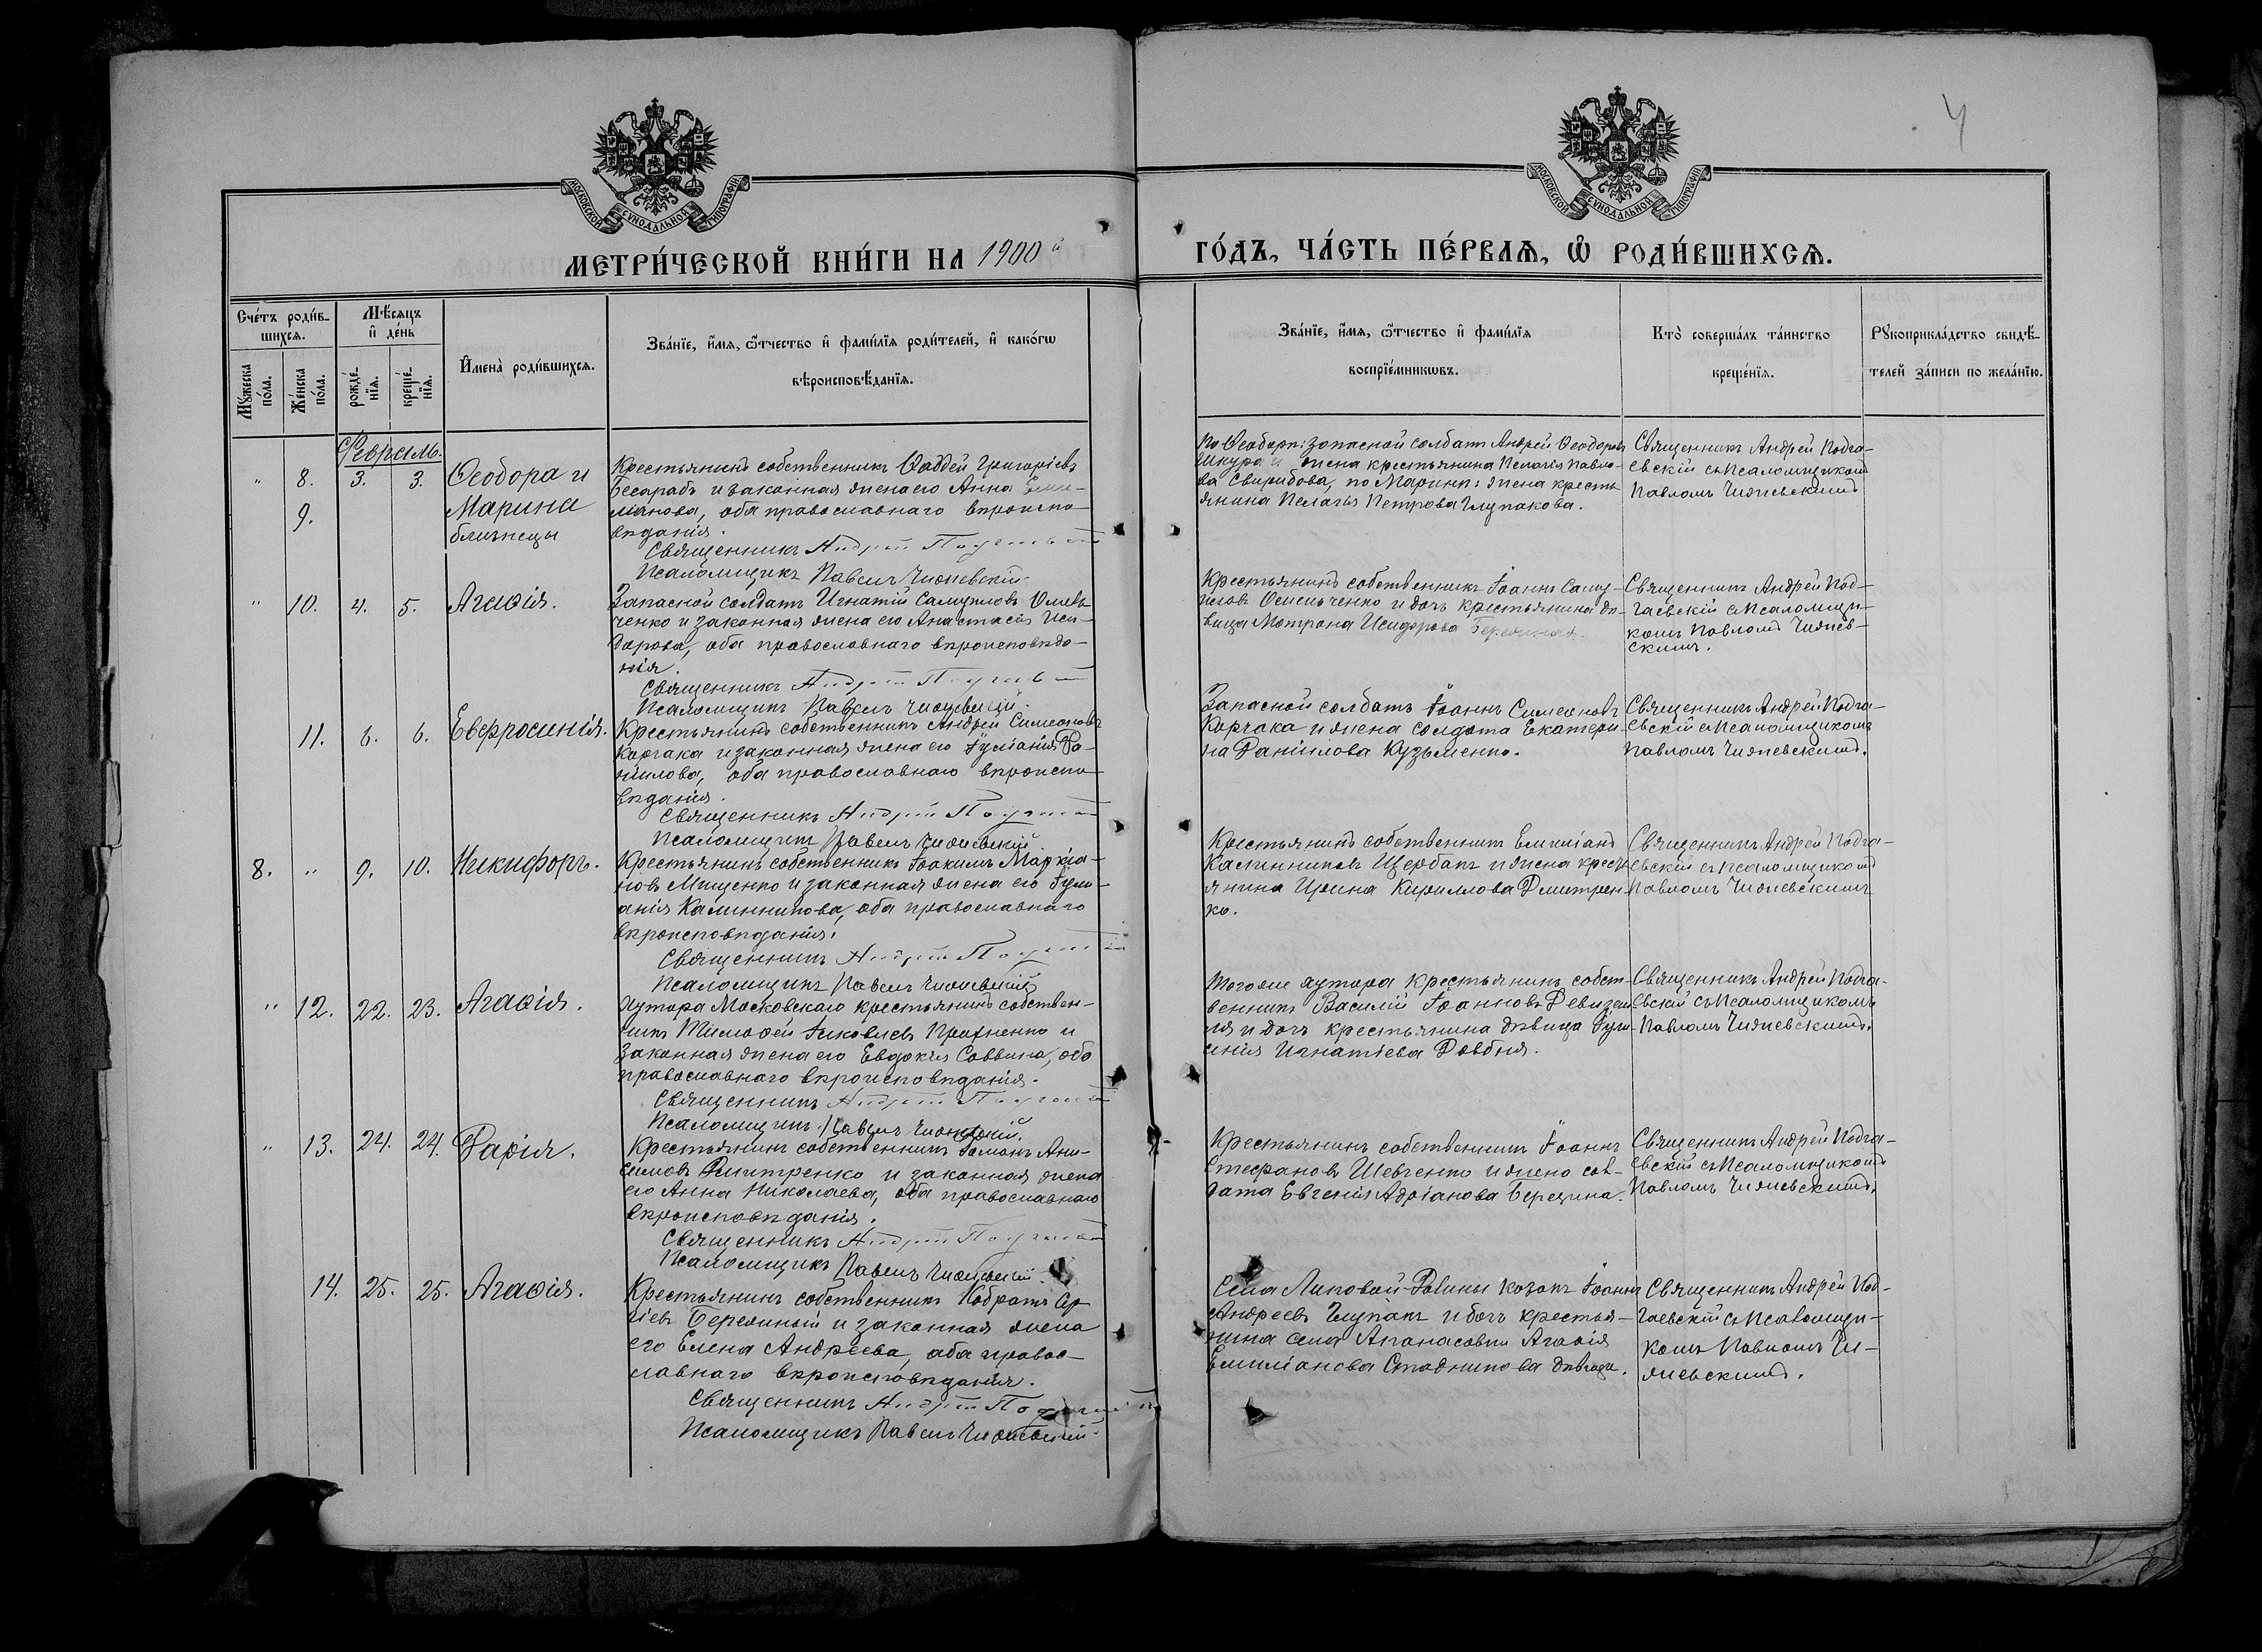 4
МОСКОВСКОЙ СУНОДАЛЬНОЙ ТИПОГРАФІИ
МОСКОВСКОЙ СУНОДАЛЬНОЙ ТИПОГРАФІИ
МЕТРИ́ЧЕСКОЙ КНИ́ГИ НА 1900й
ГО́ДЪ, ЧА́СТЬ ПЕ́РВАѦ, Ѽ РОДИ́ВШИХСѦ.
Сче́тъ роди́в-
шихсѧ.
Мꙋ́жеска по́ла.
Же́нска по́ла.
Мѣ́сѧцъ и҆ де́нь
рожде́-нїѧ.
креще́-нїѧ.
И҆мена̀ роди́вшихсѧ.
Зва́нїе, и҆́мѧ, ѻ҆́тчество и҆ фамѝлїѧ роди́телей, и҆ како́гѡ
вѣроисповѣ́данїѧ.
Зва́нїе, и҆́мѧ, ѻ҆́тчество и҆ фамѝлїѧ
воспрїе́мникѡвъ.
Кто̀ соверша́лъ та́инство
креще́нїѧ.
Рꙋкоприкла́дство свидѣ́-
телей за́писи по жела́нїю.
Февраль.
" 8. 3. 3. Ѳеодора и
9. Марина
близнецы
Крестьянинъ собственникъ Ѳаддей Григоріевъ
Бесарабъ и законная жена его Анна Еми-
ліанова, оба православнаго вѣроиспо-
вѣданія.
Священникъ Андрей
Псаломщикъ Павелъ Чижевскій.
По Ѳеодорѣ: запасной солдатъ Андрей Ѳеодоровъ
Шкура и жена крестьянина Пелагія Павло-
ва Свиридова, по Маринѣ: жена кресть-
янина Пелагья Петрова Глупакова.
Священникъ Андрей Подга-
евскій съ Псаломщикомъ
Павломъ Чижевскимъ
" 10. 4. 5. Агаѳія.
Запасной солдатъ Игнатій Самуиловъ Омель-
ченко и законная жена его Анастасія Иси-
дорова, оба православнаго вѣроисповѣда-
нія.
Священникъ Андрей
Псаломщикъ Павелъ Чижевскій.
Крестьянинъ собственникъ Іоаннъ Саму-
иловъ Омельченко и дочь крестьянина дѣ-
вица Матрона Исидорова
Священникъ Андрей Под-
гаевскій съ Псаломщи-
комъ Павломъ Чижев-
скимъ.
11. 6. 6. Евфросинія.
Крестьянинъ собственникъ Андрей Симеоновъ
Корчака и законная жена его Іуліанія Да-
ниилова, оба православнаго вѣроиспо-
вѣданія.
Священникъ Андрей
Псаломщикъ Павелъ Чижевскій.
Запасной солдатъ Іоаннъ Симеоновъ
Корчака и жена солдата Екатери-
на Даніилова Кузьменко.
Священникъ Андрей Подга-
евскій съ Псаломщикомъ
Павломъ Чижевскимъ.
8. " 9. 10. Никифоръ.
Крестьянинъ собственникъ Іоакимъ Маркіа-
новъ Мищенко и законная жена его Іулі-
анія Калинникова, оба православнаго
вѣроисповѣданія.
Священникъ Андрей
Псаломщикъ Павелъ Чижевскій
Крестьянинъ собственникъ Емиліанъ
Калинниковъ Щербакъ и жена кресть-
янина Ирина Кириллова Дмитрен-
ко.
Священникъ Андрей Подга-
евскій съ Псаломщикомъ
Павломъ Чижевскимъ
" 12. 22. 23. Агаѳія.
Хутора Московскаго крестьянинъ собствен-
никъ Тимоѳей Іаковлевъ Прахненко и
законная жена его Евдокія Саввина, оба
православнаго вѣроисповѣданія.
Священникъ Андрей
Псаломщикъ Павелъ Чижевскій.
Того же хутора крестьянинъ собст-
венникъ Василій Іоанновъ
и дочь крестьянина дѣвица Іулі-
анія Игнатіева Довбня.
Священникъ Андрей Подга-
евскій съ Псаломщикомъ
Павломъ Чижевскимъ.
" 13. 24. 24. Дарія.
Крестьянинъ собственникъ Романъ Ани-
симовъ Дмитренко и законная жена
его Анна Николаева, оба православнаго
вѣроисповѣданія.
Священникъ Андрей
Псаломщикъ Павелъ Чижевскій.
Крестьянинъ собственникъ Іоаннъ
Стефановъ Шевченко и жена сол-
дата Евгенія Адріанова Бережна.
Священникъ Андрей Подга-
евскій съ Псаломщикомъ
Павломъ Чижевскимъ.
14. 25. 25. Агаѳія.
Крестьянинъ собственникъ Кодратъ Сер-
гіевъ Бережный и законная жена
его Елена Андреева, оба право-
славнаго вѣроисповѣданія.
Священникъ Андрей
Псаломщикъ Павелъ Чижевскій.
Села Липовой-Долины козакъ Іоаннъ
Андреевъ Глупакъ и дочь крестья-
нина села Апанасовки Агаѳія
Емиліанова Стадникова дѣвица.
Священникъ Андрей Под-
гаевскій съ Псаломщи-
комъ Павломъ Чи-
жевскимъ.